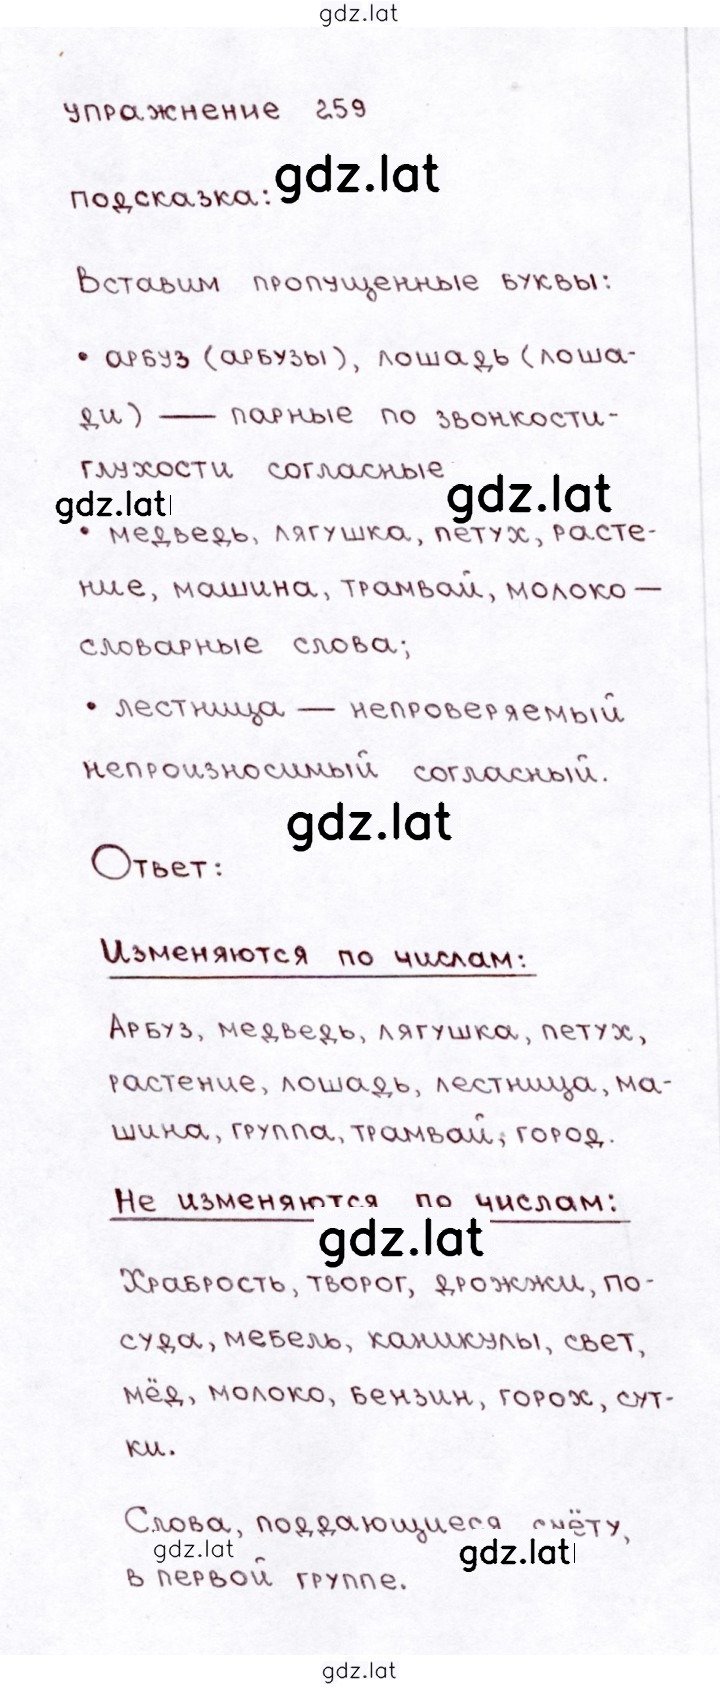 gdz.lat
упражнение 259
gdz.lat
подсказка:
Вставим пропущенные буквы:
• арбуз (арбузы), лошадь (лоша-
ди) — парные по звонкости-
глухости согласные
gdz.lat
gdz.lat
• медведь, лягушка, петух, расте-
ние, машина, трамвай, молоко —
словарные слова;
• лестница — непроверяемый
непроизносимый согласный.
gdz.lat
Ответ:
Изменяются по числам:
Арбуз, медведь, лягушка, петух,
растение, лошадь, лестница, ма-
шина, группа, трамвай, город.
Не изменяются по числам:
gdz.lat
Храбрость, творог, дрожжи, по-
суда, мебель, каникулы, свет,
мёд, молоко, бензин, горох, сут-
ки.
Слова, поддающиеся счёту,
gdz.lat
gdz.lat
в первой группе.
gdz.lat